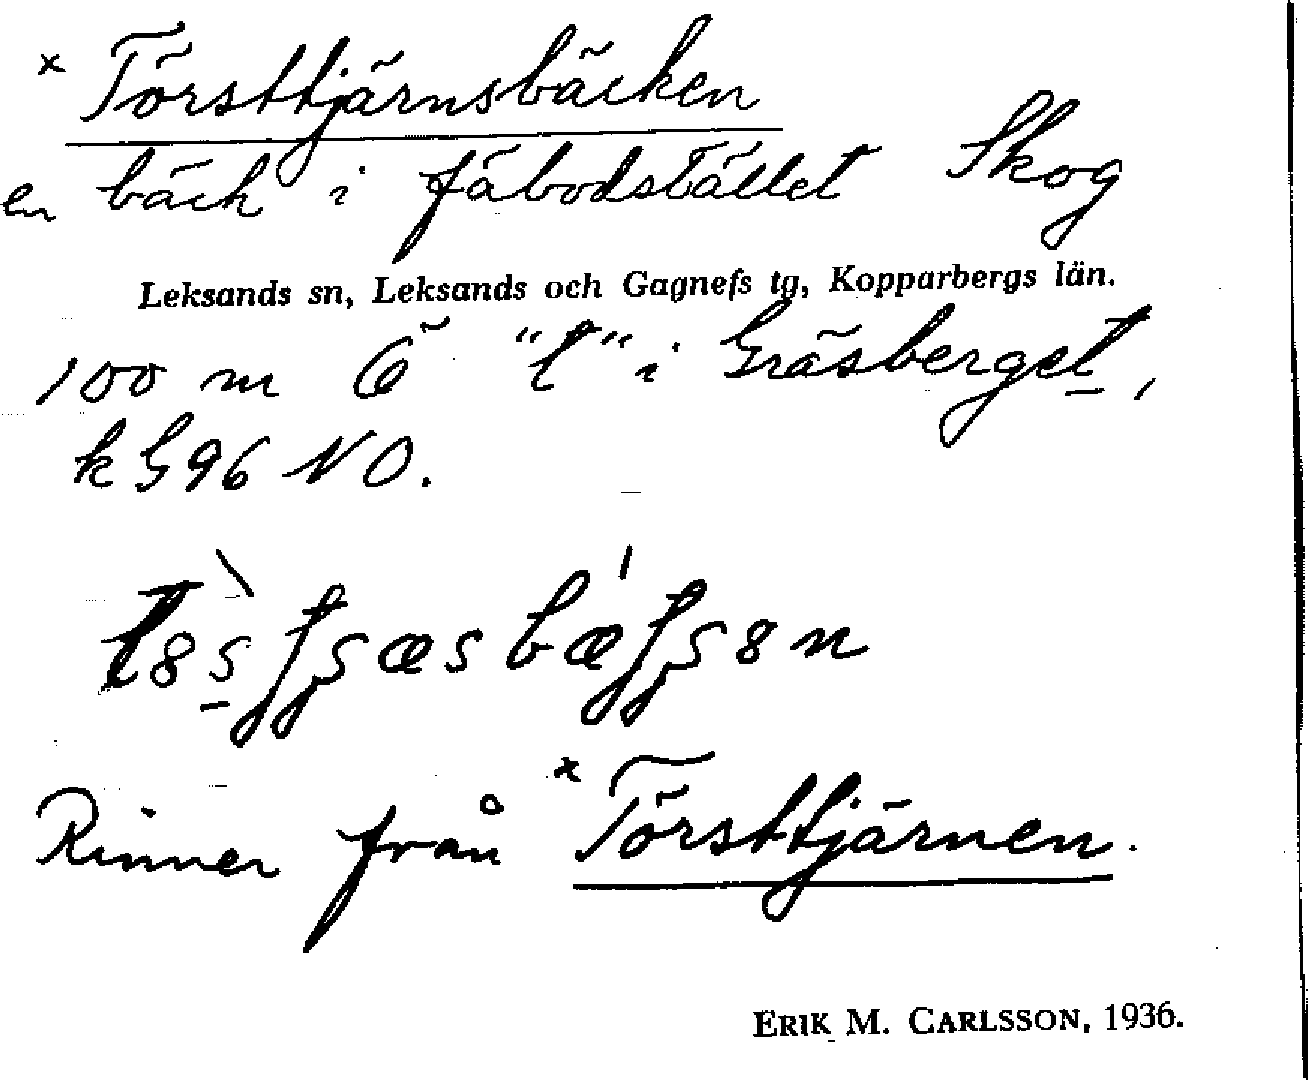 × Törsttjärnsbäcken
en bäck i fäbodstället Skog
Leksands sn, Leksands och Gagnefs tg, Kopparbergs län.
100 m Ö "t" i Gräsberget,
k G96 NO.
Rinner från × Törsttjärnen.
ERIK M. CARLSSON, 1936.